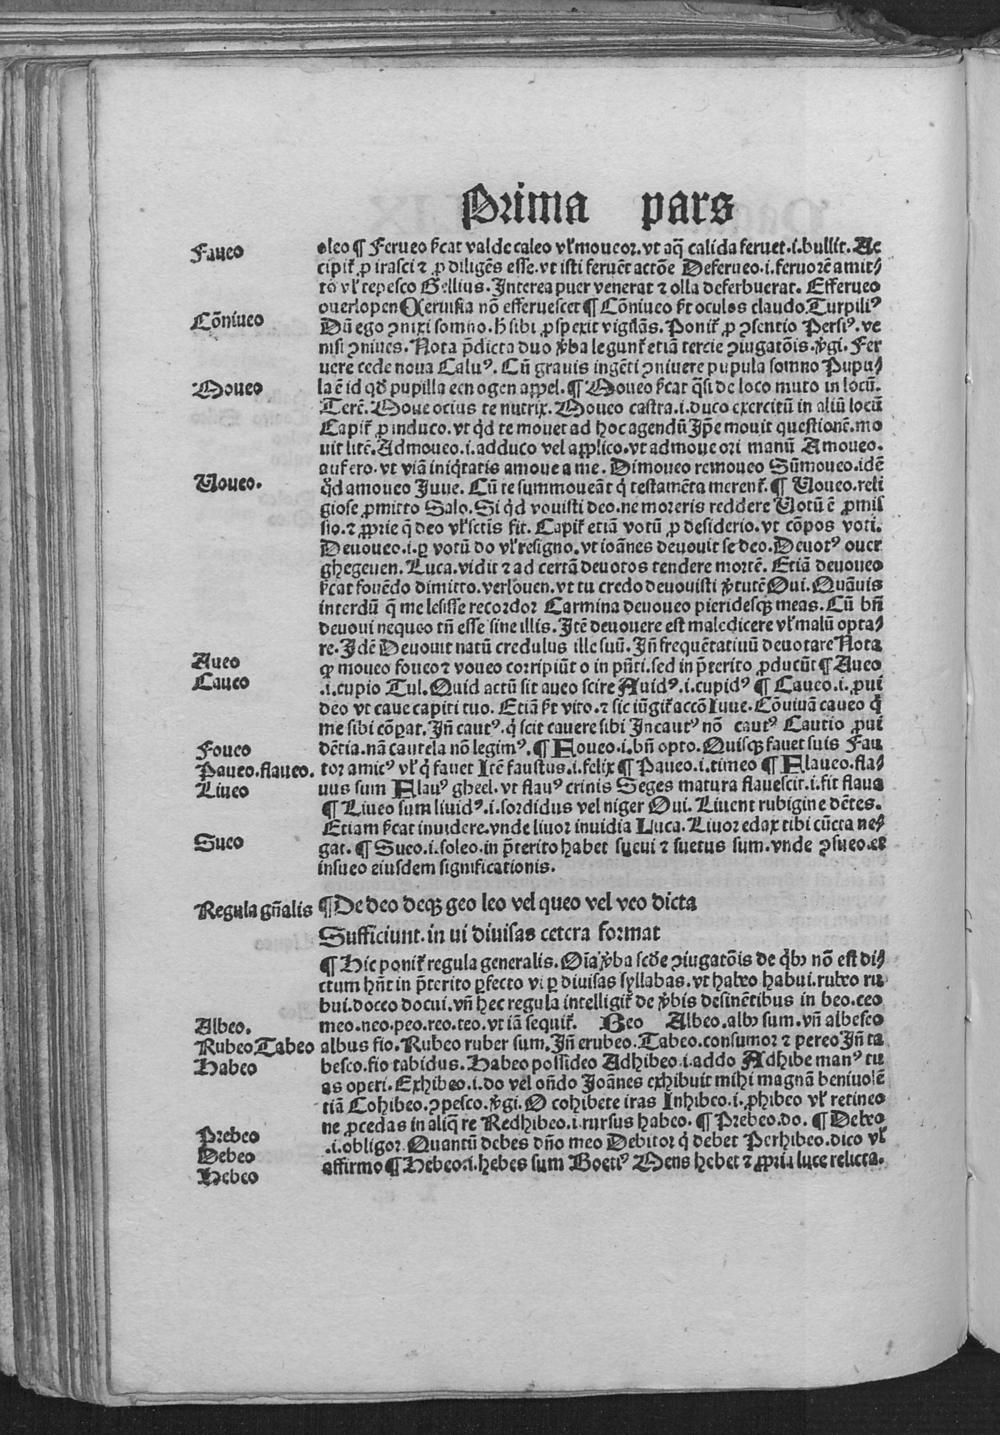 Prima pars
Faueo
oleo ¶ Ferueo ſ̄cat valde caleo vl̓ moueor. vt aq̄ calida feruet .i. bullit. Ac
cipit̓ ꝓ irasci ⁊ ꝓ diligēs esse. vt isti feruēt actōe Deferueo .i. feruorē amit⸗
to vl̓ tepesco Gellius. Interea puer venerat ⁊ olla deferbuerat. Efferueo
ouerlopen Ceruisia nō efferuescet ¶ Cōniueo ſ̄t oculos claudo. Turpiliꝰ
Cōniueo
Dū ego ꝯnixi somno. h̄ sibi ꝓspexit vigilās. Ponit̓ ꝓ ꝯsentio Persiꝰ. ve
nisi ꝯniues. Nota p̄dicta duo v̄ba legunt̓ etiā tercie ꝯiugatōis. v̄gi. Fer
uere cede noua Caluꝰ. Cū grauis ingēti ꝯniuere pupula somno Pupu⸗
Moueo
la ē id qd̓ pupilla een ogen appel. ¶ Moueo ſ̄cat q̄si de loco muto in locū.
Terē. Moue ocius te nutrix. Moueo castra .i. duco exercitū in aliū locū
Capit̓ ꝓ induco. vt qd̓ te mouet ad hoc agendū Ip̄e mouit questionē. mo
uit litē. Admoueo .i. adduco vel applico. vt admoue ori manū Amoueo.
aufero. vt viā iniq̄tatis amoue a me. Dimoueo remoueo Sūmoueo. idē
Voueo.
qd̓ amoueo Juue. Cū te summoueāt q̄ testamēta merent̓. ¶ Voueo. reli
giose ꝓmitto Salo. Si qd̓ vouisti deo. ne moreris reddere Votū ē ꝓmis
sio. ⁊ ꝓprie q̄ deo vl̓ sctis fit. Capit̓ etiā votū ꝓ desiderio. vt cōpos voti.
Deuoueo .i. ꝑ votū do vl̓ resigno. vt ioānes deuouit se deo. Deuotꝰ ouer
ghegeuen. Luca. vidit ⁊ ad certā deuotos tendere mortē. Etiā deuoueo
ſ̄cat fouēdo dimitto. verlouen. vt tu credo deuouisti v̄tutē Oui. Quāuis
interdū q̄ me lesisse recordor Carmina deuoueo pieridesqꝫ meas. Cū bn̄
deuoui nequeo tn̄ esse sine illis. Itē deuouere est maledicere vl̓ malū opta⸗
re. Idē Deuouit natū credulus ille suū. Jn̄ frequētatiuū deuotare Nota
Aueo
qꝫ moueo foueo ⁊ voueo corripiūt o in pn̄ti. sed in p̄terito ꝓducūt ¶ Aueo
Caueo
.i. cupio Tul. Quid actū sit aueo scire Auidꝰ .i. cupidꝰ ¶ Caueo .i. ꝓui
deo vt caue capiti tuo. Etiā ſ̄t vito. ⁊ sic iūgit̓ accō Iuue. Cōuiuā caueo q̄
me sibi cōꝑat. Jn̄ cautꝰ. q̄ scit cauere sibi Incautꝰ nō cautꝰ Cautio ꝓui
Foueo
dētia. nā cautela nō legimꝰ. ¶ Foueo .i. bn̄ opto. Quisqꝫ fauet suis Fau
Paueo. flaueo.
tor amicꝰ vl̓ q̄ fauet Itē faustus .i. felix ¶ Paueo .i. timeo ¶ Flaueo. fla⸗
Liueo
uus sum Flauꝰ gheel. vt flauꝰ crinis Seges matura flauescit .i. fit flaua
¶ Liueo sum liuidꝰ .i. sordidus vel niger Oui. Liuent rubigine dētes.
Etiam ſ̄cat inuidere. vnde liuor inuidia Luca. Liuor edax tibi cūcta ne⸗
Sueo
gat. ¶ Sueo .i. soleo. in p̄terito habet sueui ⁊ suetus sum. vnde ꝯsueo. et
insueo eiusdem significationis.
Regula gn̄alis
¶ De deo deqꝫ geo leo vel queo vel veo dicta
Sufficiunt. in ui diuisas cetera format
¶ Hic ponit̓ regula generalis. Oīa v̄ba scd̓e ꝯiugatōis de qb̓ꝫ nō est di⸗
ctum hn̄t in p̄terito ꝑfecto vi ꝑ diuisas syllabas. vt habeo habui. rubeo ru
bui. doceo docui. vn̄ hec regula intelligit̓ de v̄bis desinētibus in beo. ceo
Albeo.
meo. neo. peo. reo. teo. vt iā sequit̓. Beo Albeo. albꝰ sum. vn̄ albesco
Rubeo Tabeo
albus fio. Rubeo ruber sum. Jn̄ erubeo. Tabeo. consumor ⁊ pereo Jn̄ ta
Habeo
besco. fio tabidus. Habeo possideo Adhibeo .i. addo Adhibe manꝰ tu
as operi. Exhibeo .i. do vel on̄do Joānes exhibuit mihi magnā beniuolē
tiā Cohibeo. ꝯpesco. v̄gi. O cohibete iras Inhibeo .i. ꝓhibeo vl̓ retineo
ne ꝓcedas in aliq̄ re Redhibeo .i. rursus habeo. ¶ Prebeo. do. ¶ Debeo
Prebeo
Debeo
.i. obligor. Quantū debes dn̄o meo Debitor q̄ debet Perhibeo. dico vl̓
Hebeo
affirmo ¶ Hebeo .i. hebes sum Boetiꝰ Mens hebet ⁊ ꝓpria luce relicta.